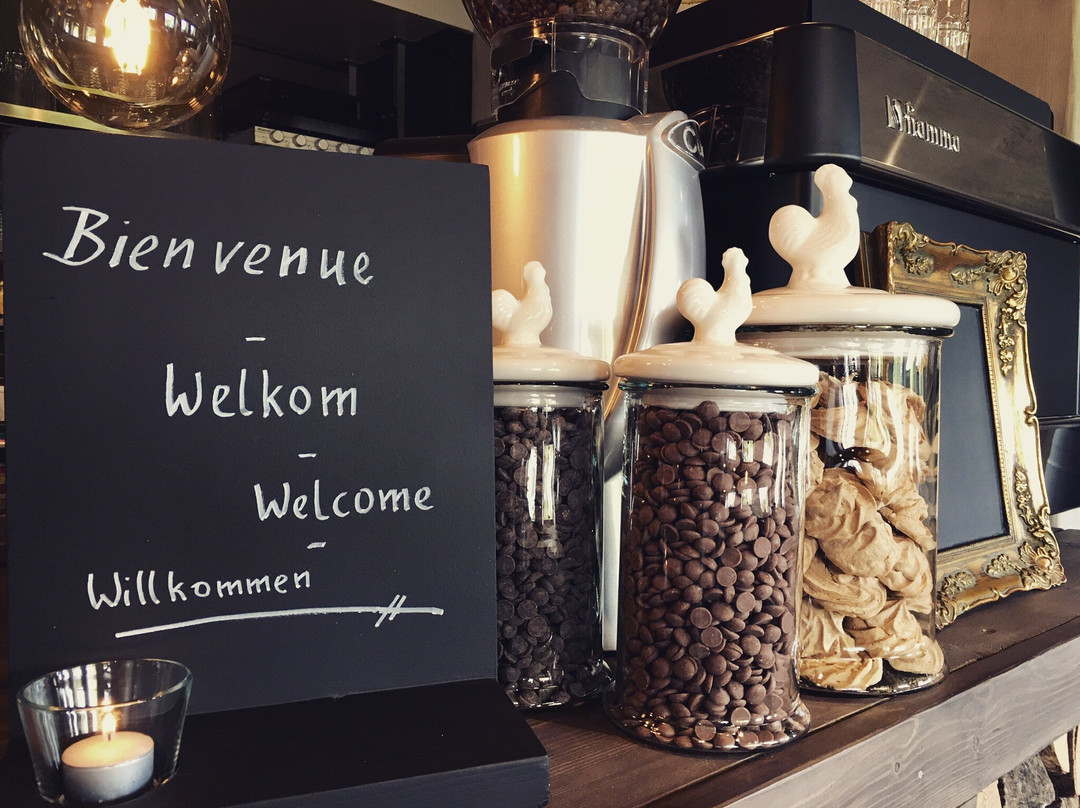 Bienvenue
-
Welkom
-
Welcome
-
Willkommen
fiamma